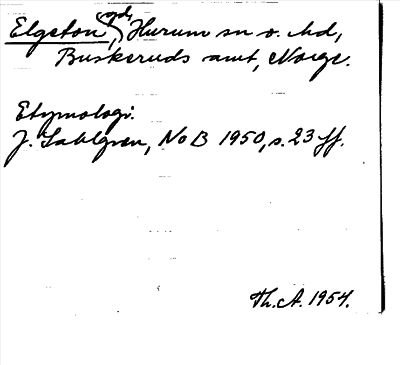 Elgeton, gd, Hurum sn o. hd,
Buskeruds amt, Norge.
Etymologi.
J. Sahlgren, NoB 1950, s. 23 ff.
Th. A. 1954.